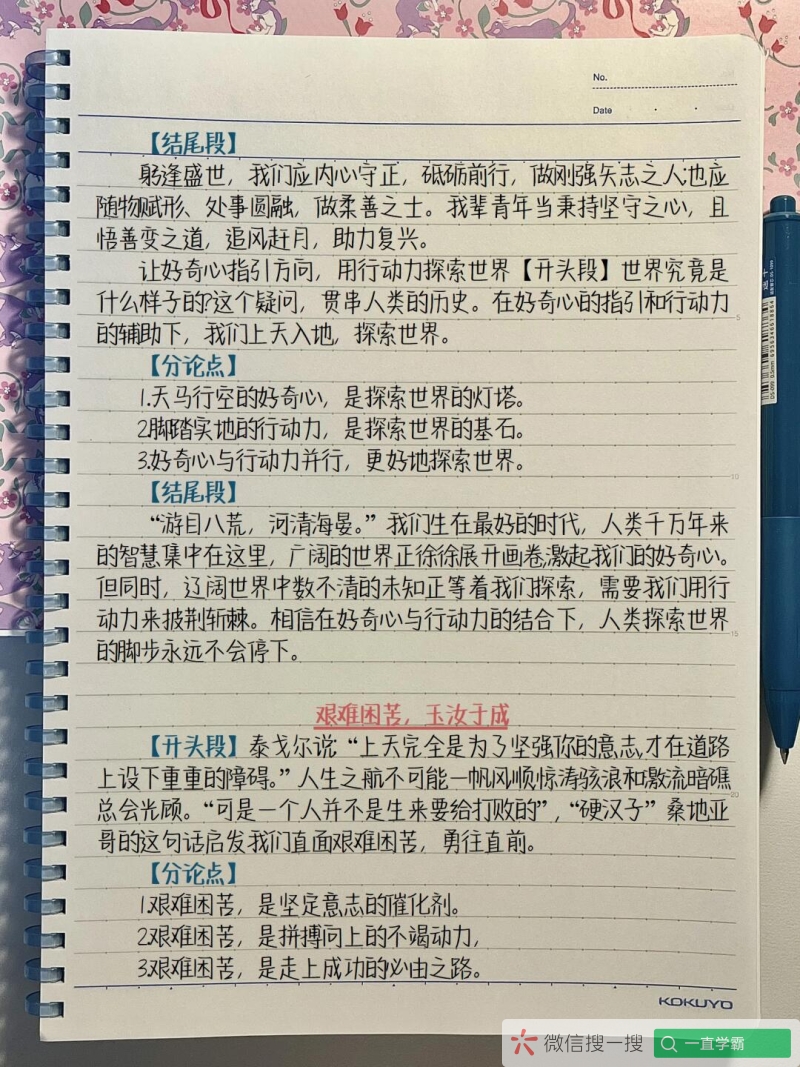 No.
Date
【结尾段】
躬逢盛世，我们应内心守正，砥砺前行，做刚强矢志之人;也应
随物赋形、处事圆融，做柔善之士。我辈青年当秉持坚守之心，且
悟善变之道，追风赶月，助力复兴。
让好奇心指引方向，用行动力探索世界【开头段】世界究竟是
什么样子的?这个疑问，贯串人类的历史。在好奇心的指引和行动力
的辅助下，我们上天入地，探索世界。
5
【分论点】
1.天马行空的好奇心，是探索世界的灯塔。
2.脚踏实地的行动力，是探索世界的基石。
3.好奇心与行动力并行，更好地探索世界。
10
【结尾段】
“游目八荒，河清海晏。”我们生在最好的时代，人类千万年来
的智慧集中在这里，广阔的世界正徐徐展开画卷,激起我们的好奇心。
但同时，辽阔世界中数不清的未知正等着我们探索，需要我们用行
动力来披荆斩棘。相信在好奇心与行动力的结合下，人类探索世界
15
的脚步永远不会停下。
艰难困苦，玉汝于成
【开头段】泰戈尔说:“上天完全是为了坚强你的意志,才在道路
上设下重重的障碍。”人生之航不可能一帆风顺,惊涛骇浪和激流暗礁
20
总会光顾。“可是一个人并不是生来要给打败的”，“硬汉子”桑地亚
哥的这句话启发我们直面艰难困苦，勇往直前。
【分论点】
1.艰难困苦，是坚定意志的催化剂。
2.艰难困苦，是拼搏向上的不竭动力，
3.艰难困苦，是走上成功的必由之路。
KOKUYO
微信搜一搜 一直学霸